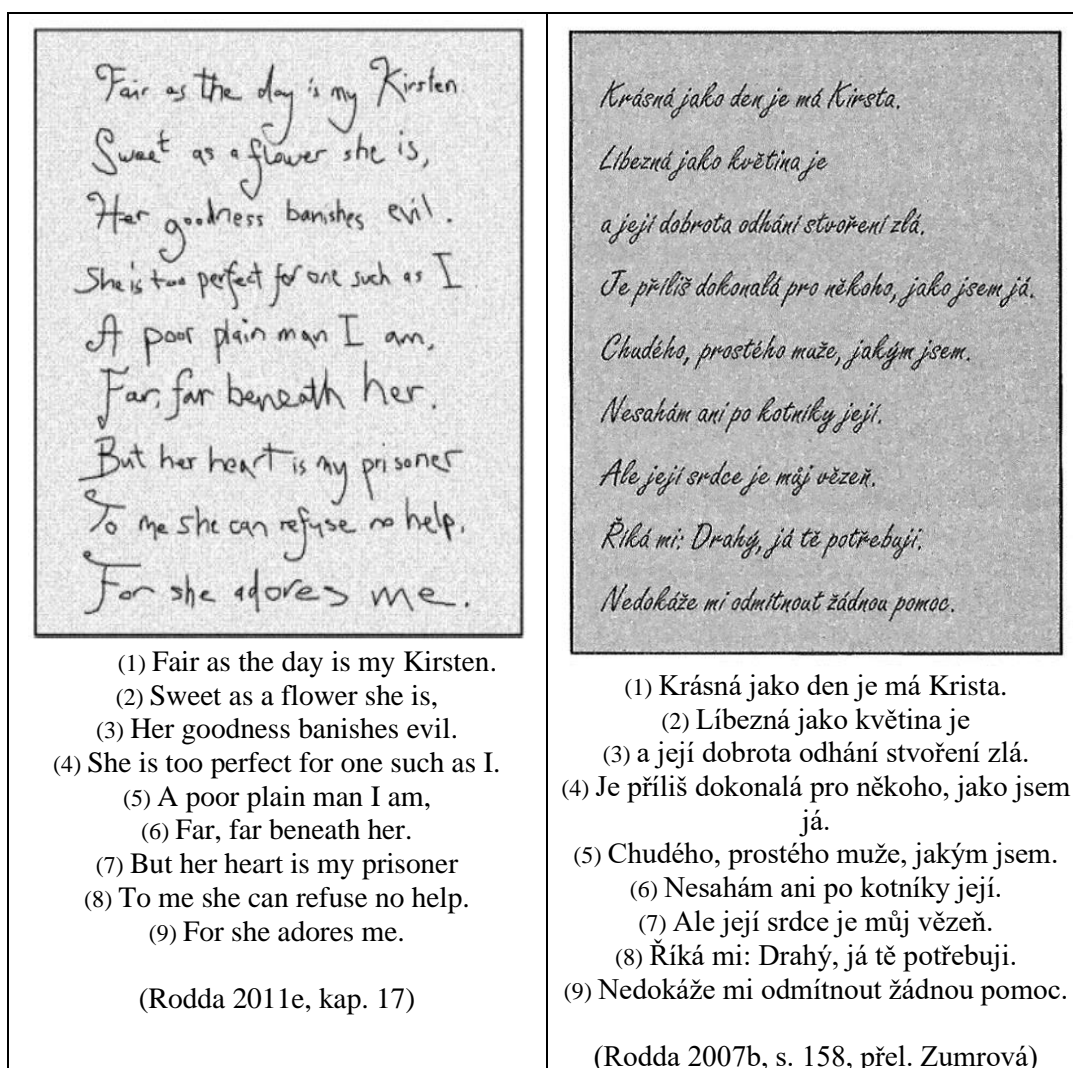 Fair as the day is my Kirsten.
Sweet as a flower she is,
Her goodness banishes evil.
She is too perfect for one such as I.
A poor plain man I am,
Far, far beneath her.
But her heart is my prisoner
To me she can refuse no help.
For she adores me.
(1) Fair as the day is my Kirsten.
(2) Sweet as a flower she is,
(3) Her goodness banishes evil.
(4) She is too perfect for one such as I.
(5) A poor plain man I am,
(6) Far, far beneath her.
(7) But her heart is my prisoner
(8) To me she can refuse no help.
(9) For she adores me.
(Rodda 2011e, kap. 17)
Krásná jako den je má Kirsta.
Líbezná jako květina je
a její dobrota odhání stvoření zlá.
Je příliš dokonalá pro někoho, jako jsem já.
Chudého, prostého muže, jakým jsem.
Nesahám ani po kotníky její.
Ale její srdce je můj vězeň.
Říká mi: Drahý, já tě potřebuji.
Nedokáže mi odmítnout žádnou pomoc.
(1) Krásná jako den je má Krista.
(2) Líbezná jako květina je
(3) a její dobrota odhání stvoření zlá.
(4) Je příliš dokonalá pro někoho, jako jsem
já.
(5) Chudého, prostého muže, jakým jsem.
(6) Nesahám ani po kotníky její.
(7) Ale její srdce je můj vězeň.
(8) Říká mi: Drahý, já tě potřebuji.
(9) Nedokáže mi odmítnout žádnou pomoc.
(Rodda 2007b, s. 158, přel. Zumrová)